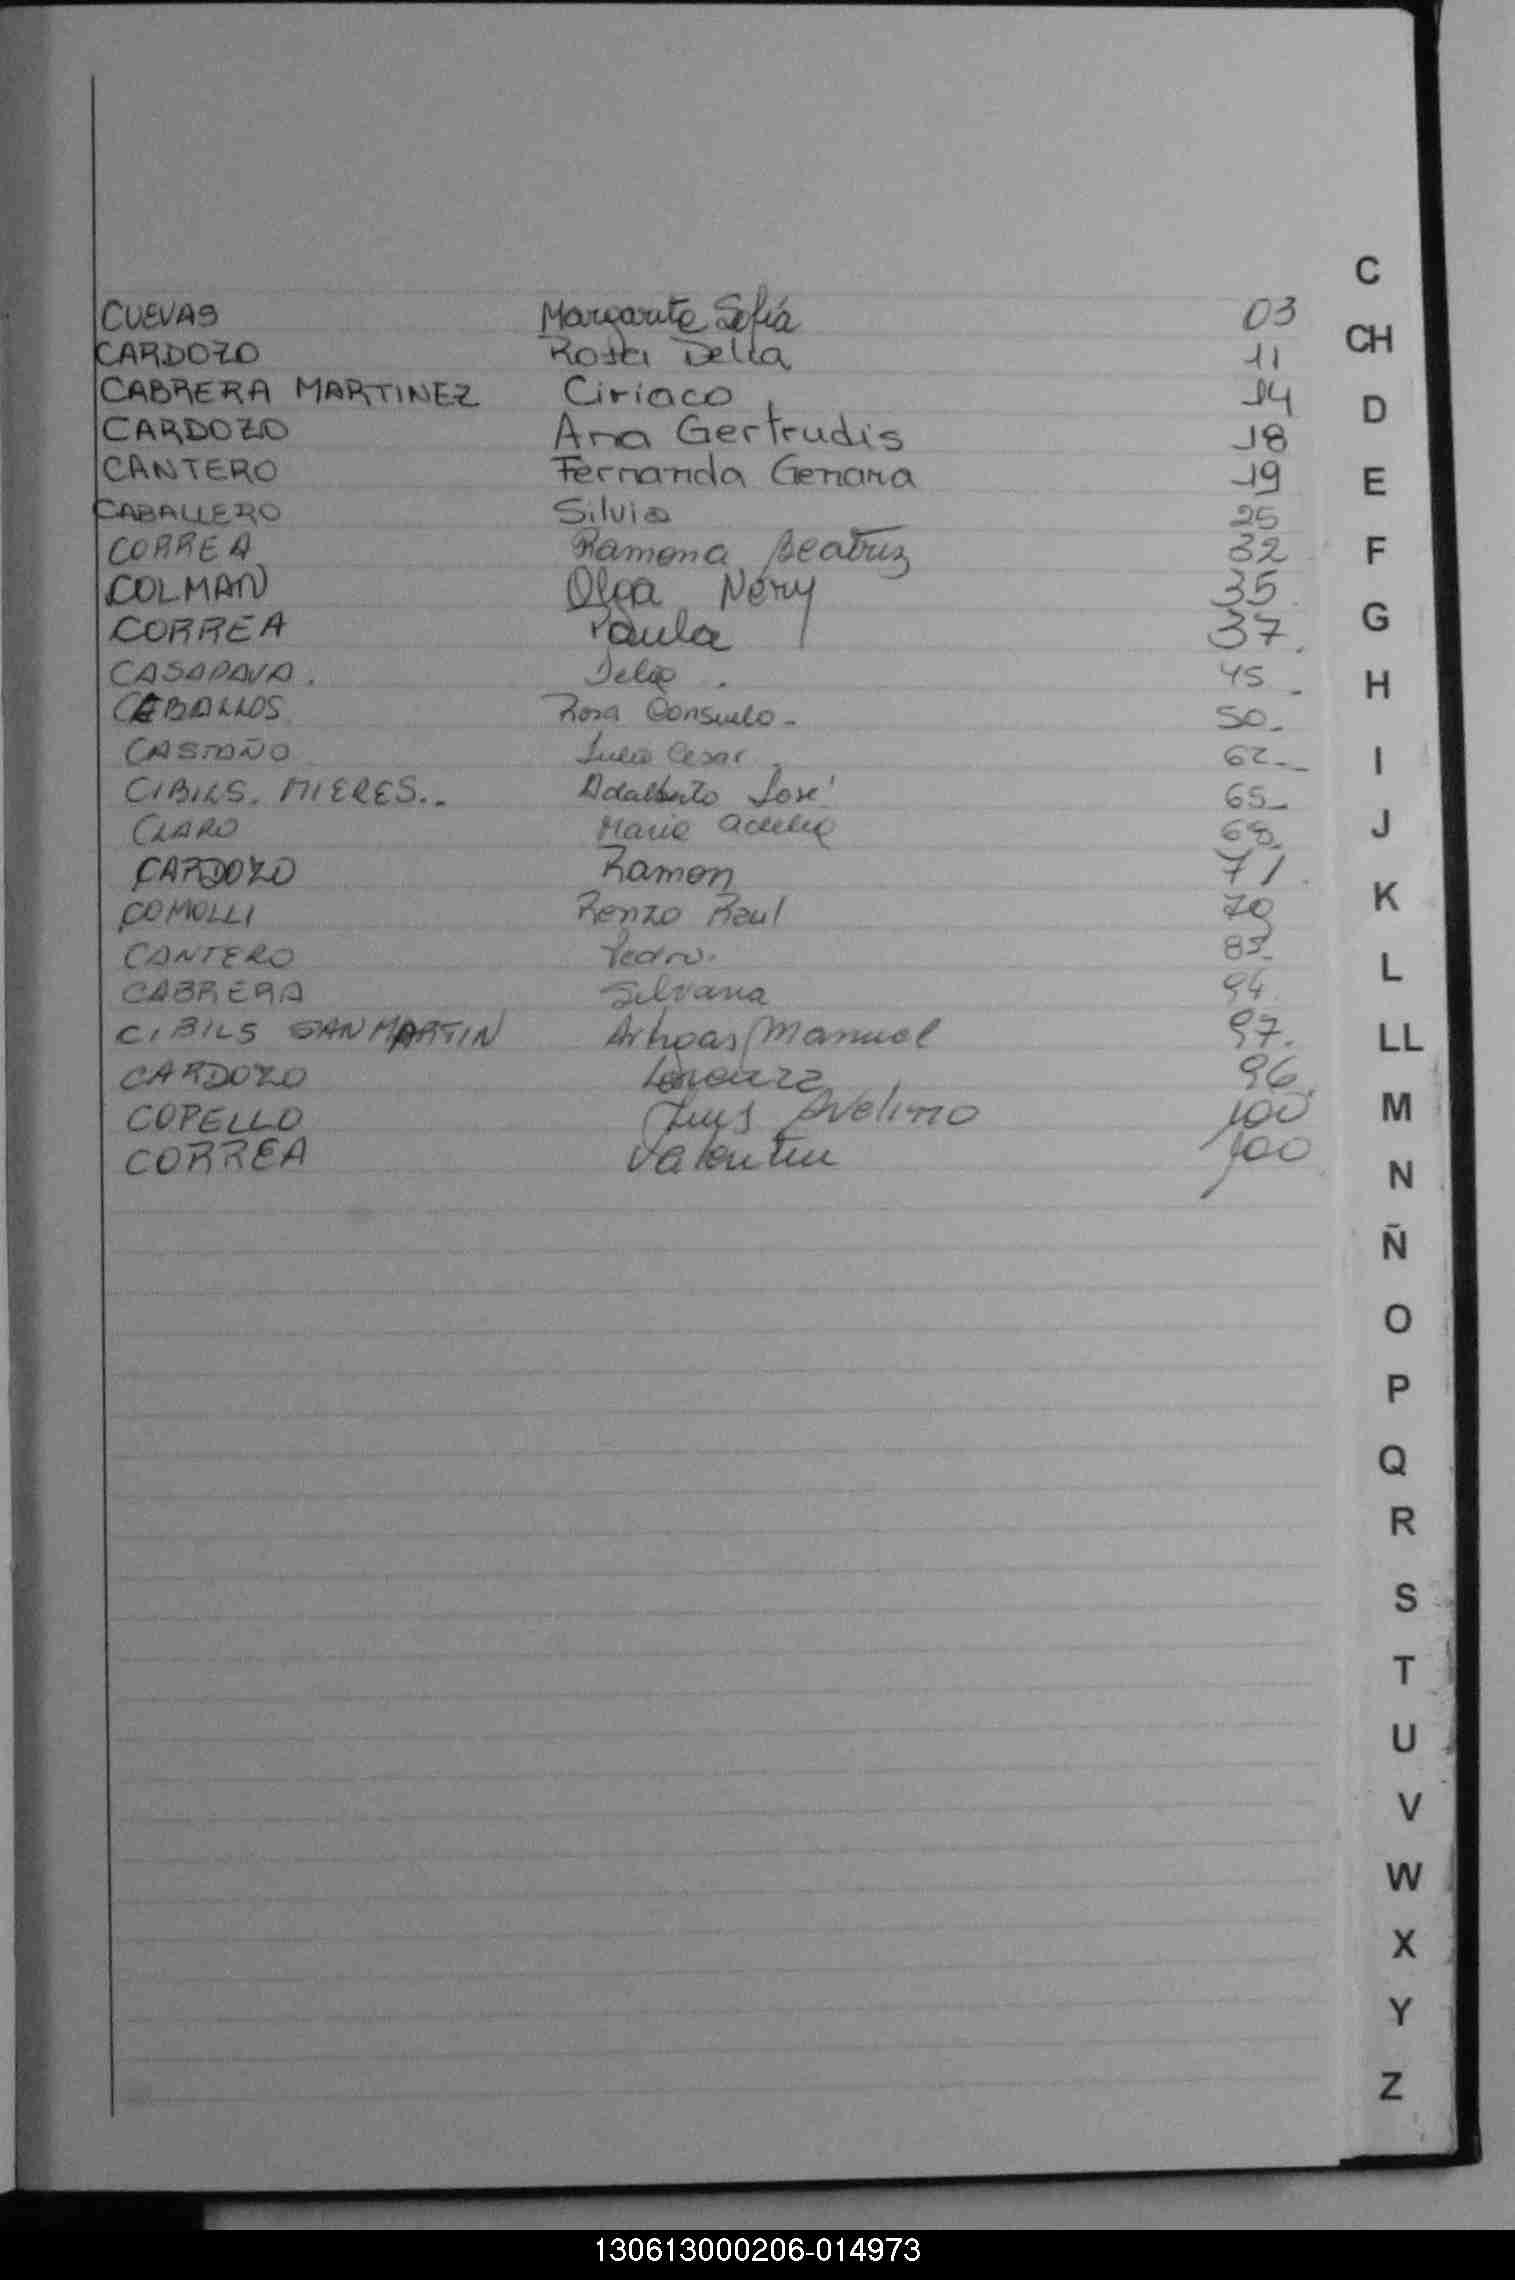 C
CUEVAS Margarita Sofía 03
CH
CARDOZO Rosa Delia 11
CABRERA MARTINEZ Ciriaco 14
D
CARDOZO Ana Gertrudis 18
CANTERO Fernanda Genara 19
E
CABALLERO Silvia 25
CORREA Ramona Beatriz 32
F
COLMAN Olga Nery 35
G
CORREA Paula 37.
CASAPAVA. Delia. 45_
H
CEBALLOS Rosa Consuelo- 50_
CASTAÑO Julio Cesar 62-_
I
CIBILS. MIERES.. Adalberto José 65_
J
CLARO Maria 68.
CARDOZO Ramon 71.
K
COMOLLI Renzo Raul 70
CANTERO Pedro. 83_
L
CABRERA Silvana 94.
CIBILS SANMARTIN Artigas Manuel 97.
LL
CARDOZO 96.
M
COPELLO Luis Avelino 100
CORREA Valentin 100
N
Ñ
O
P
Q
R
S
T
U
V
W
X
Y
Z
130613000206-014973